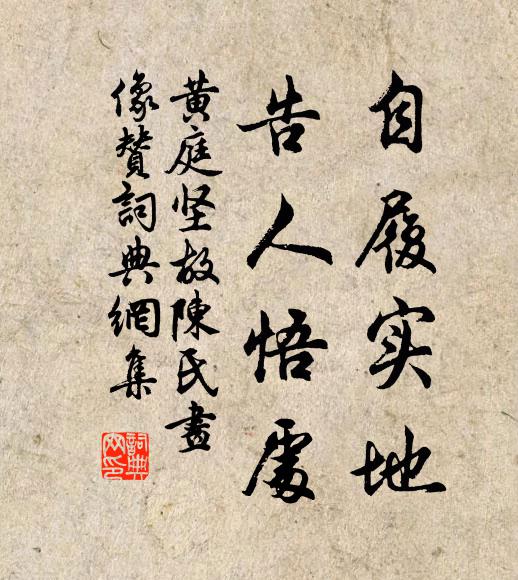 自履实地
告人悟處
黄庭坚故陳氏畫
像贊詞典網集
詞典
网印